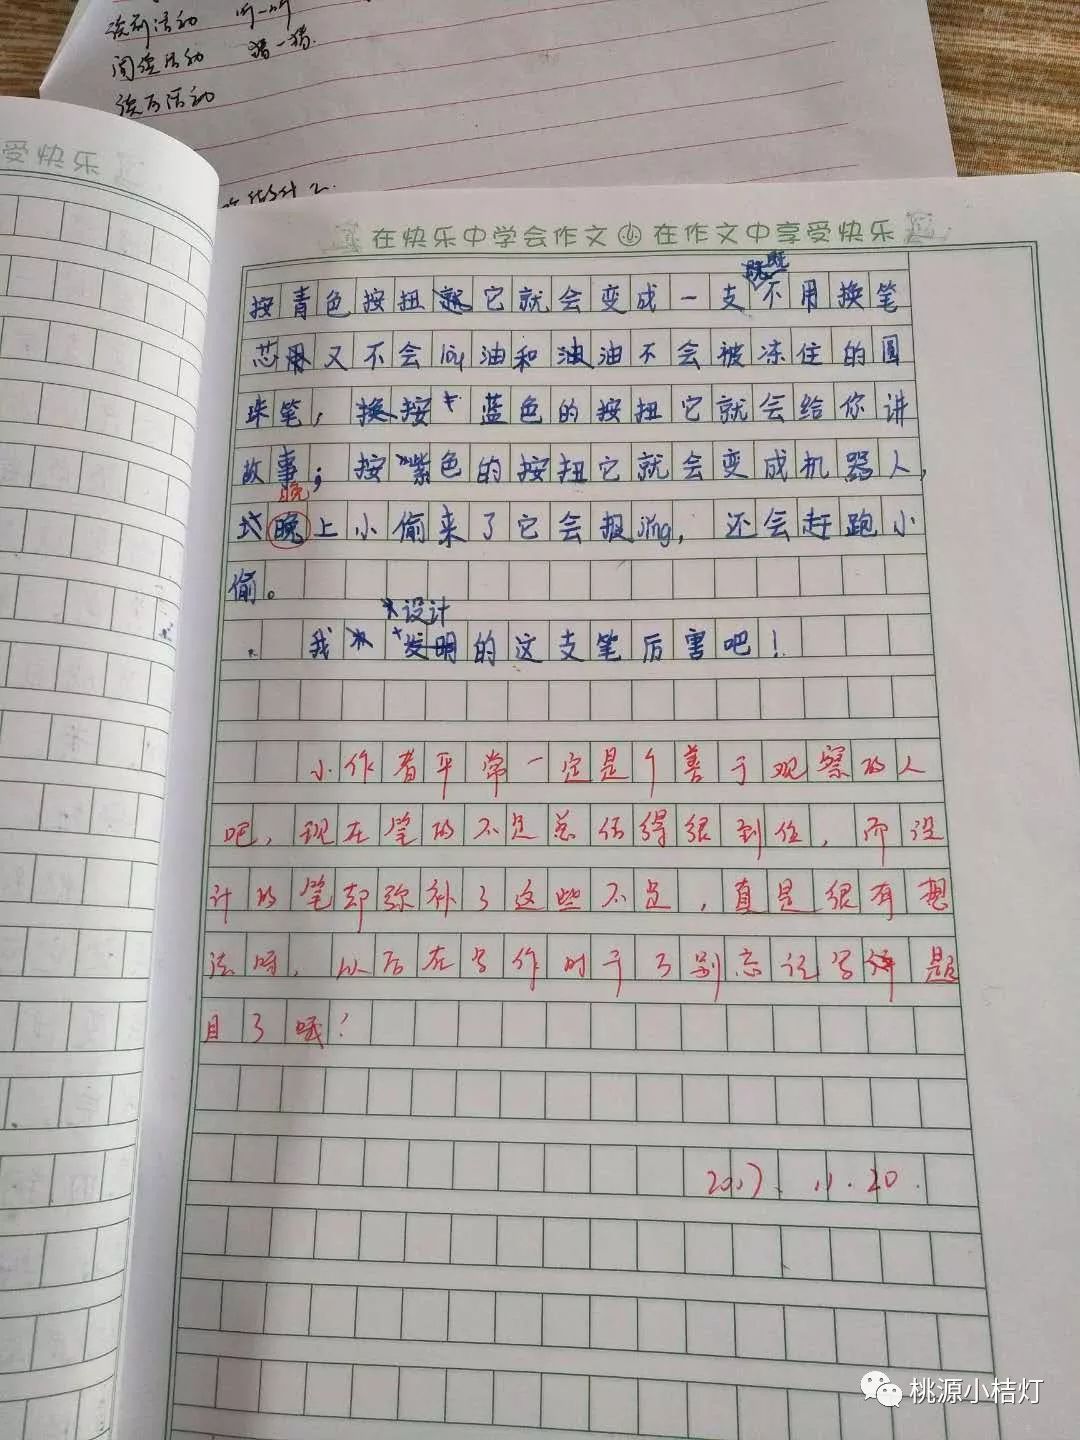 阅读活动 猜一猜
读后活动
受快乐
在快乐中学会作文 在作文中享受快乐
按青色按扭它就会变成一支既不用换笔
芯又不会lòu油和油不会被冻住的圆
珠笔，按蓝色的按扭它就会给你讲
故事；按紫色的按扭它就会变成机器人，
晚
晚上小偷来了它会报jǐng，还会赶跑小
偷。
设计
我发明的这支笔厉害吧！
小作者平常一定是个善于观察的人
吧，现在笔的不足总结得很到位，而设
计的笔却弥补了这些不足，真是很有想
法呀，以后在写作时千万别忘记写题
目了哦！
2017.11.20.
桃源小桔灯